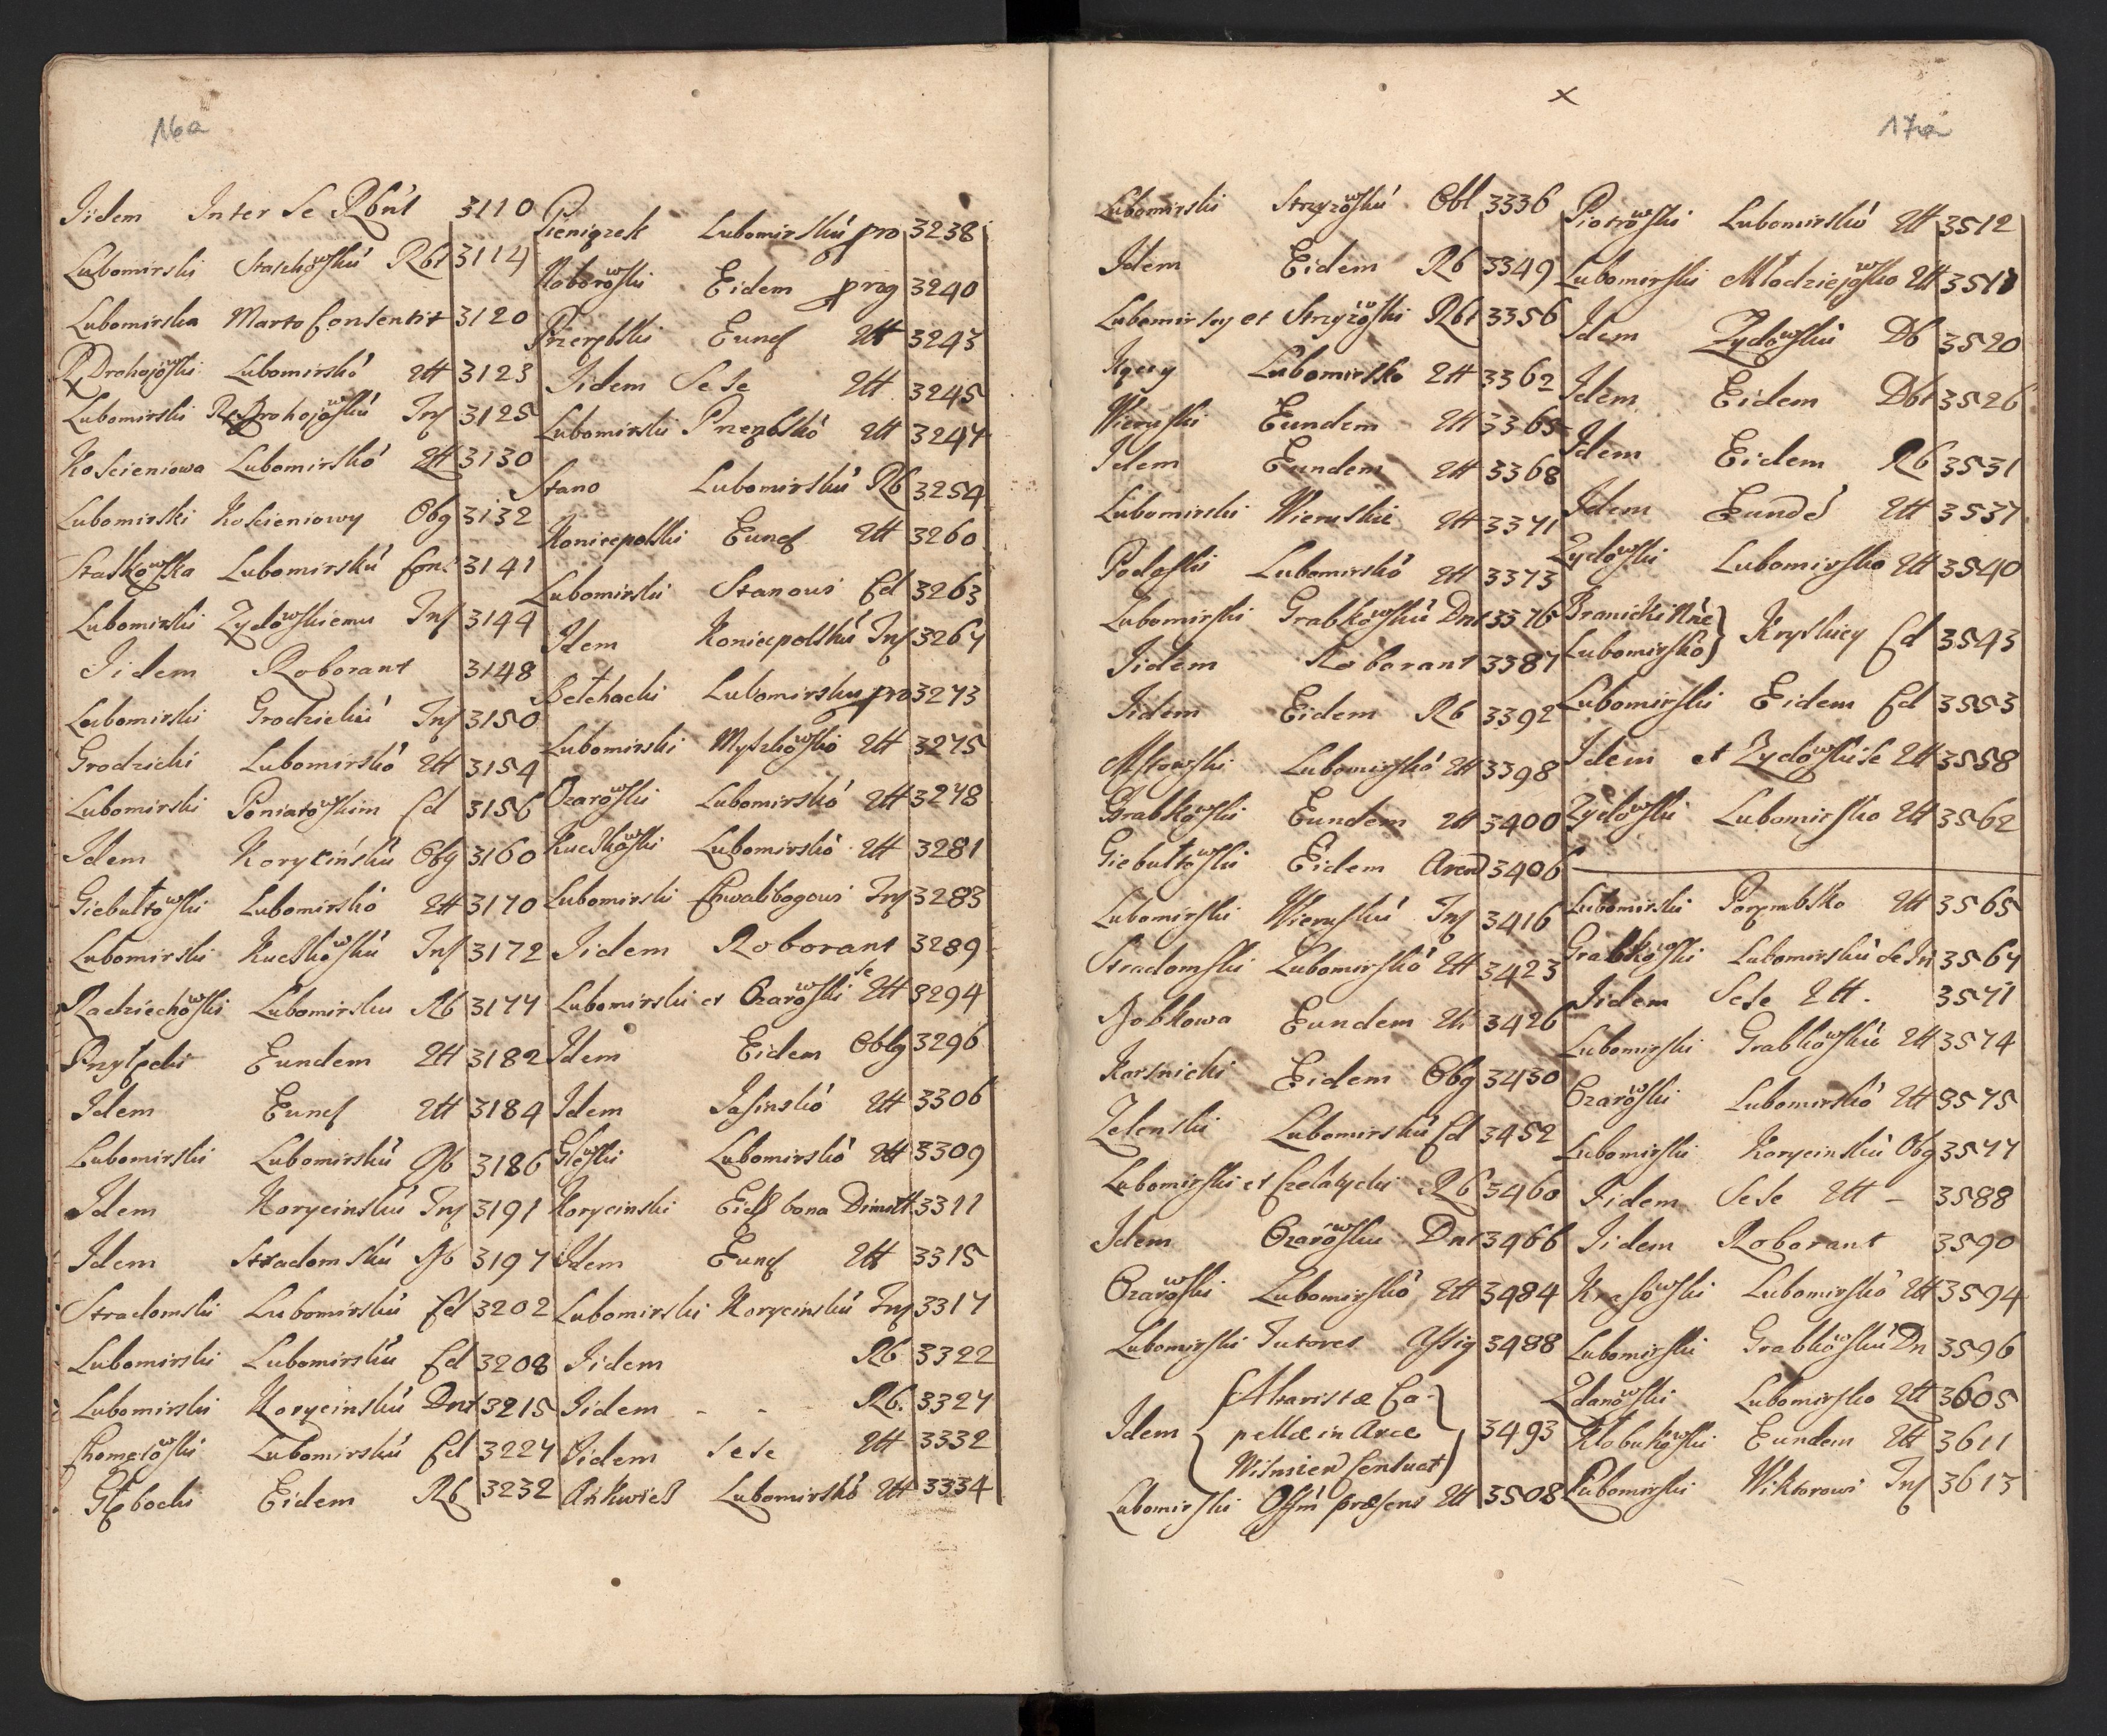 16a
Iidem Inter Se Rbnt 3110
Lubomirski Staszkowsků Rbt 3114
Lubomirska Marto Consentit 3120
Drohojowski Lubomirskó Qtt 3123
Lubomirski Drohojowsků Ins 3125
Koscieniowa Lubomirskó Qtt 3130
Lubomirski Koscieniowy Obg 3132
Staskowska Lubomirsků Con 3141
Lubomirski Zydowskiemu Ins 3144
Iidem Roborant 3148
Lubomirski Grodzicků Ins 3150
Grodzicki Lubomirskó Qtt 3154
Lubomirski Poniatowskim Cd 3156
Idem Koryciński Obg 3160
Giebułtowski Lubomirskó Qtt 3170
Lubomirski Kuczkowsků Ins 3172
Radziechowski Lubomirsku Rb 3177
Przyłęcki Eundem Qtt 3182
Idem Eund Qtt 3184
Lubomirski Lubomirsků 3186
Idem Korycinsků Ins 3191
Idem Stradomsků 3197
Stradomski Lubomirsků Cd 3202
Lubomirski Lubomirsků Cd 3208
Lubomirski Korycinsků Dnt 3215
Chometowski Lubomirsků Cd 3227
Głębocki Eidem Rb 3232
Pieniązek Lubomirsků pro 3238
Koborowski Eidem prog 3240
Przerębski Eund Qtt 3243
Iidem Sese Qtt 3245
Lubomirski Przerębskó Qtt 3247
Stano Lubomirsků Rb 3254
Koniecpolski Eund Qtt 3260
Lubomirski Stanowi Cd 3263
Idem Koniecpolsků Ins 3267
Bełchacki Lubomirsku pro 3273
Lubomirski Myszkowskó Qtt 3275
Ozarowski Lubomirskó Qtt 3278
Kuczkowski Lubomirskó Qtt 3281
Lubomirski Chwalibogowi Ins 3283
Iidem Roborant 3289
Lubomirski et Ozarowski se Qtt 3294
Idem Eidem Oblg 3296
Idem Jasinskó Qtt 3306
Lubomirskó Qtt 3309
Korycinski Eid bona Dimitt 3311
Idem Eund Qtt 3315
Lubomirski Korycinsků Ins 3317
Iidem Rb 3322
Iidem - - Rb. 3327
Iidem sese Qtt 3332
Ankwicz Lubomirskó Qtt 3334
x
17a
Lubomirski Stryzowsků Obl 3336
Idem Eidem Rb 3349
Lubomirscy et Stryzowski Rbt 3356
Kęccy Lubomirsko Qtt 3362
Wieruski Eundem Qtt 3365
Idem Eundem Qtt 3368
Lubomirski Wieruskie Qtt 3371
Podoski Lubomirskó Qtt 3373
Lubomirski Grabkowsků Dnt 3376
Iidem Roborant 3387
Iidem Eidem Rb 3392
Mstowski Lubomirskó Qtt 3398
Grabkowski Eundem Qtt 3400
Giebułtowski Eidem Arend 3406
Lubomirski Wierusků Ins 3416
Stradomski Lubomirskó Qtt 3423
Bobkowa Eundem Qtt 3426
Karsnicki Eidem Obg 3430
Zelenski Lubomirsků Cd 3452
Lubomirski et Rb 3460
Idem Ozarowsku Dnt 3466
Ozarowski Lubomirskó Qtt 3484
Lubomirski Tutores Assig 3488
Idem Altaristæ Ca-
pellæ in Arce 3493
Wisnicz Censuat
Lubomirski præsens Qtt 3508
Piotrowski Lubomirskó Qtt 3512
Lubomirski Młodziejowsko Qtt 3518
Idem Zydowsků Db 3520
Idem Eidem Dbt 3526
Idem Eidem Rb 3531
Idem Eundé Qtt 3537
Zydowski Lubomirsko Qtt 3540
Branicki
Lubomirskó Kryskiey Cd 3543
Lubomirski Eidem Cd 3553
Idem et Zydowski se Qtt 3558
Zydowski Lubomirsko Qtt 3562
Lubomirski Porymbsko Qtt 3565
Grabkowski Lubomirsků de In 3567
Iidem Sese Qtt. 3571
Lubomirski Grabkowsků Qtt 3574
Ozarowski Lubomirskó Qtt 3575
Lubomirski Korycinsků Obg 3577
Iidem Sese Qtt - 3588
Iidem Roborant 3590
Krasowski Lubomirskó Qtt 3594
Lubomirski Grabkowsků Dn 3596
Zdanowski Lubomirsko Qtt 3605
Kłobukowski Eundem Qtt 3611
Lubomirski Wiktorowi Ins 3613